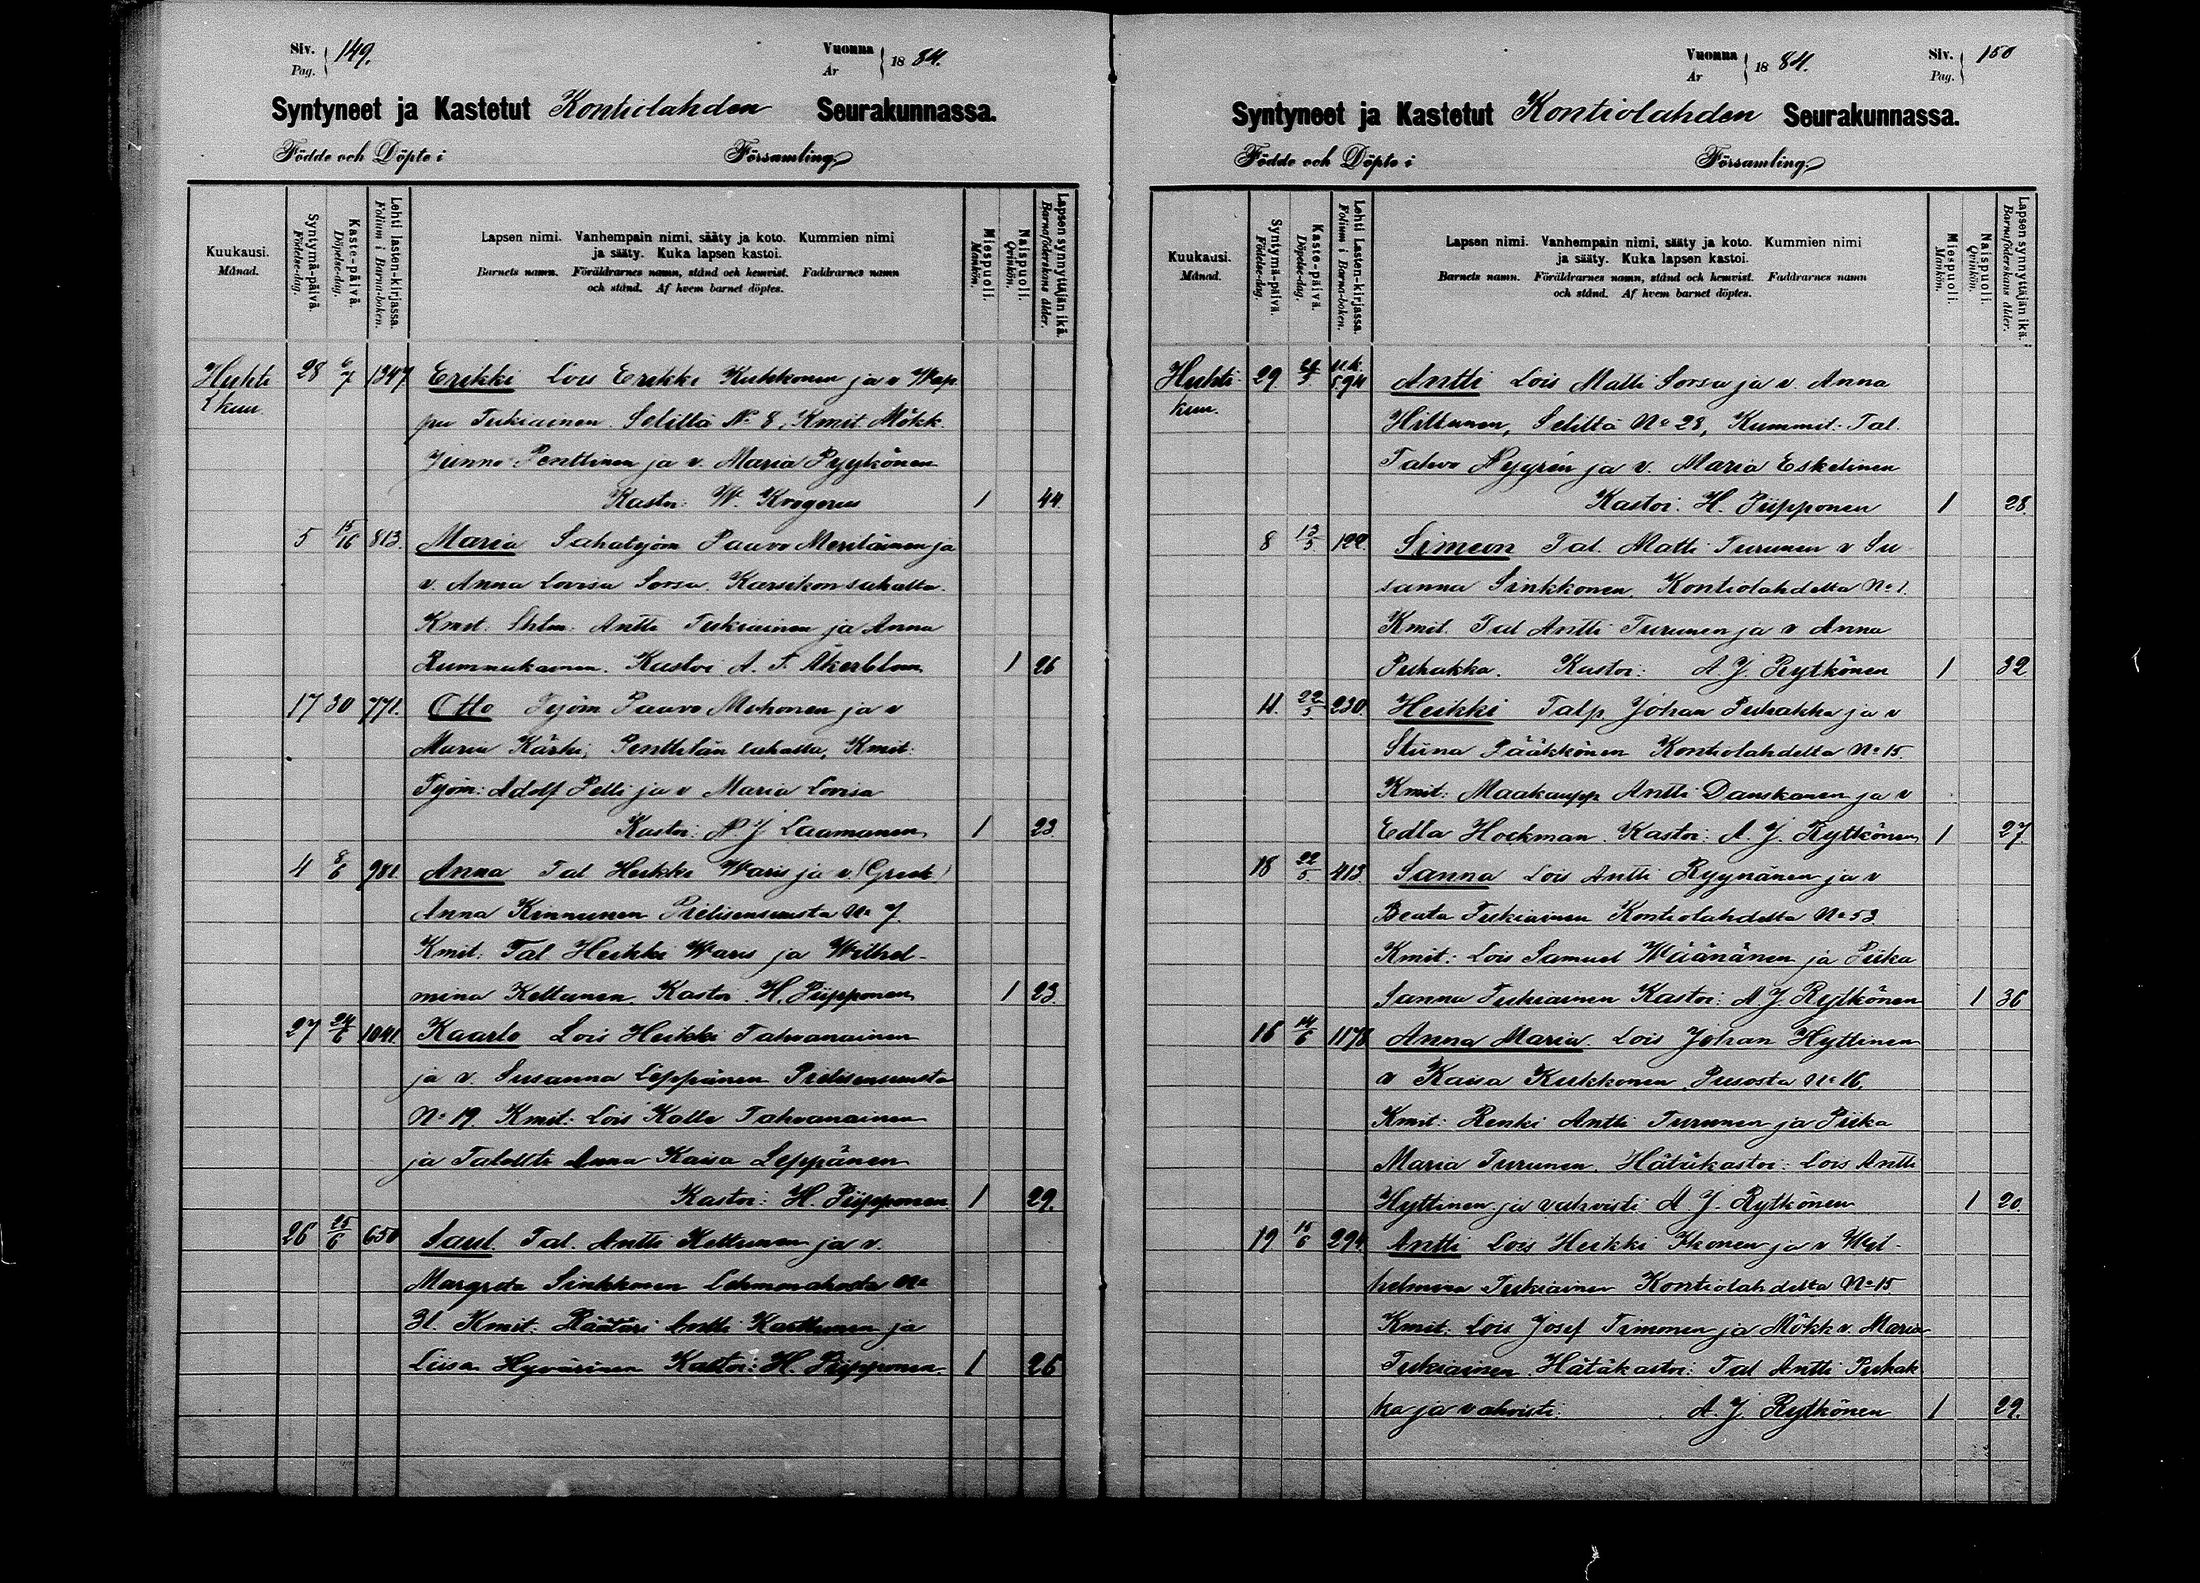 Siv. Pag. 149.
Vuonna År 1884.
Syntyneet ja Kastetut Kontiolahden Seurakunnassa.
Födde och Döpte i Församling.
Kuukausi. Månad.
Syntymä-päivä. Födelse-dag.
Kaste-päivä. Döpelse-dag.
Lehti lasten-kirjassa. Folium i Barna-boken.
Lapsen nimi. Vanhempain nimi, sääty ja koto. Kummien nimi
ja sääty. Kuka lapsen kastoi.
Barnets namn. Föräldrarnes namn, stånd och hemvist. Faddrarnes namn
och stånd. Af hvem barnet döptes.
Miespuoli. Mankön.
Naispuoli. Qvinkön.
Lapsen synnyttäjän ikä. Barnaföderskans ålder.
Huhti 28 6/7 1347 Erikki Lois Erikki Kukkonen ja v Wap
kuu pu Tukiainen Seliltä No 8, Kmit Mökk.
Junno Penttinen ja v. Maria Pyykönen
Kastoi: W. Krogerus 1 44.
5 15/6 813. Maria Sahatyöm Paavo Meriläinen ja
v. Anna Lovisa Sorsa. Karsikon sahalta.
Kmit. Antti Tukiainen ja Anna
Rummukainen. Kastoi A. F. Åkerblom 1 26
17 30 771. Otto Työm Paavo Mehonen ja v
Maria Kärki, Penttilän sahalta, Kmit:
Työm: Adolf Pelli ja v Maria Lovisa
Kastoi: N. J Laamanen 1 23.
4 8/6 981. Anna Tal Heikki Waris ja v (Greek)
Anna Kinnunen Pielisensuusta No 7.
Kmit: Tal Heikki Waris ja Wilhel-
mina Keltanen. Kastoi H. Piipponen 1 23.
27 24/6 1041 Kaarlo Lois Heikki Tahvanainen
ja v. Susanna Leppänen Pielisensuusta
No 19. Kmit: Lois Kalle Tahvanainen
ja Anna Kaisa Leppänen
Kastoi: H. Piipponen 1 29.
26 25/6 650 Saul. Tal. Antti Kettunen ja v.
Margreta Sinkkonen Lehmonahosta No
31. Kmit: Räätäri Antti Karttunen ja
Liisa Hyvärinen Kastoi: H. Piipponen. 1 26
Vuonna År 1884.
Siv. Pag. 150
Syntyneet ja Kastetut Kontiolahden Seurakunnassa.
Födde och Döpte i Församling.
Kuukausi. Månad.
Syntymä-päivä. Födelse-dag.
Kaste-päivä. Döpelse-dag.
Lehti Lasten-kirjassa. Folium i Barna-boken.
Lapsen nimi. Vanhempain nimi, sääty ja koto. Kummien nimi
ja sääty. Kuka lapsen kastoi.
Barnets namn. Föräldrarnes namn, stånd och hemvist. Faddrarnes namn
och stånd. Af hvem barnet döptes.
Miespuoli. Mankön.
Naispuoli. Qvinkön.
Lapsen synnyttäjän ikä. Barnaföderskans ålder.
Huhti- 29 Antti Lois Matti Sorsa ja v. Anna
kuu. Hiltunen, Seliltä No 28, Kummit: Tal.
Tahvo Nygrén ja v. Maria Eskelinen
Kastoi: H. Piipponen 1 28.
8 13/5 122. Simeon Tal. Matti Turunen v Su-
sanna Sinkkonen. Kontiolahdelta No 1.
Kmit. Tal Antti Turunen ja v Anna
Puhakka. Kastoi: A J. Rytkönen 1 32
11. 22/5 230. Heikki Talp Johan Puhakka ja v
Stiina Pääkkönen Kontiolahdelta No 15.
Kmit: Maakaupp Antti Danskanen ja v
Edla Hockman. Kastoi: A. J. Rytkönen 1 27.
18 22/5. 413. Sanna Lois Antti Ryynänen ja v
Beata Tukiainen Kontiolahdelta No 53
Kmit: Lois Samuel Wäänänen ja Piika
Sanna Tukiainen Kastoi: A. J. Rytkönen 1 36
16 14/6 1178 Anna Maria Lois Johan Hyttinen
v Kaisa Kukkonen. Pusosta No 16.
Kmit: Renki Antti Turunen ja Piika
Maria Turunen. Hätäkastoi: Lois Antti
Hyttinen ja vahvisti A. J. Rytkönen 1 20.
19 15/6 294. Antti Lois Heikki Ikonen ja v Wil-
helmina Tukiainen Kontiolahdelta No 15
Kmit: Lois Josef Timonen ja Mökk v. Maria
Tukiainen. Hätäkastoi: Tal Antti Puhak
ka ja vahvisti: A. J. Rytkönen 1 29.